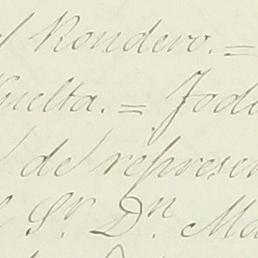 el Rondero. =
Vuelta. = Todo
de represen
Sr. Dn. Ma